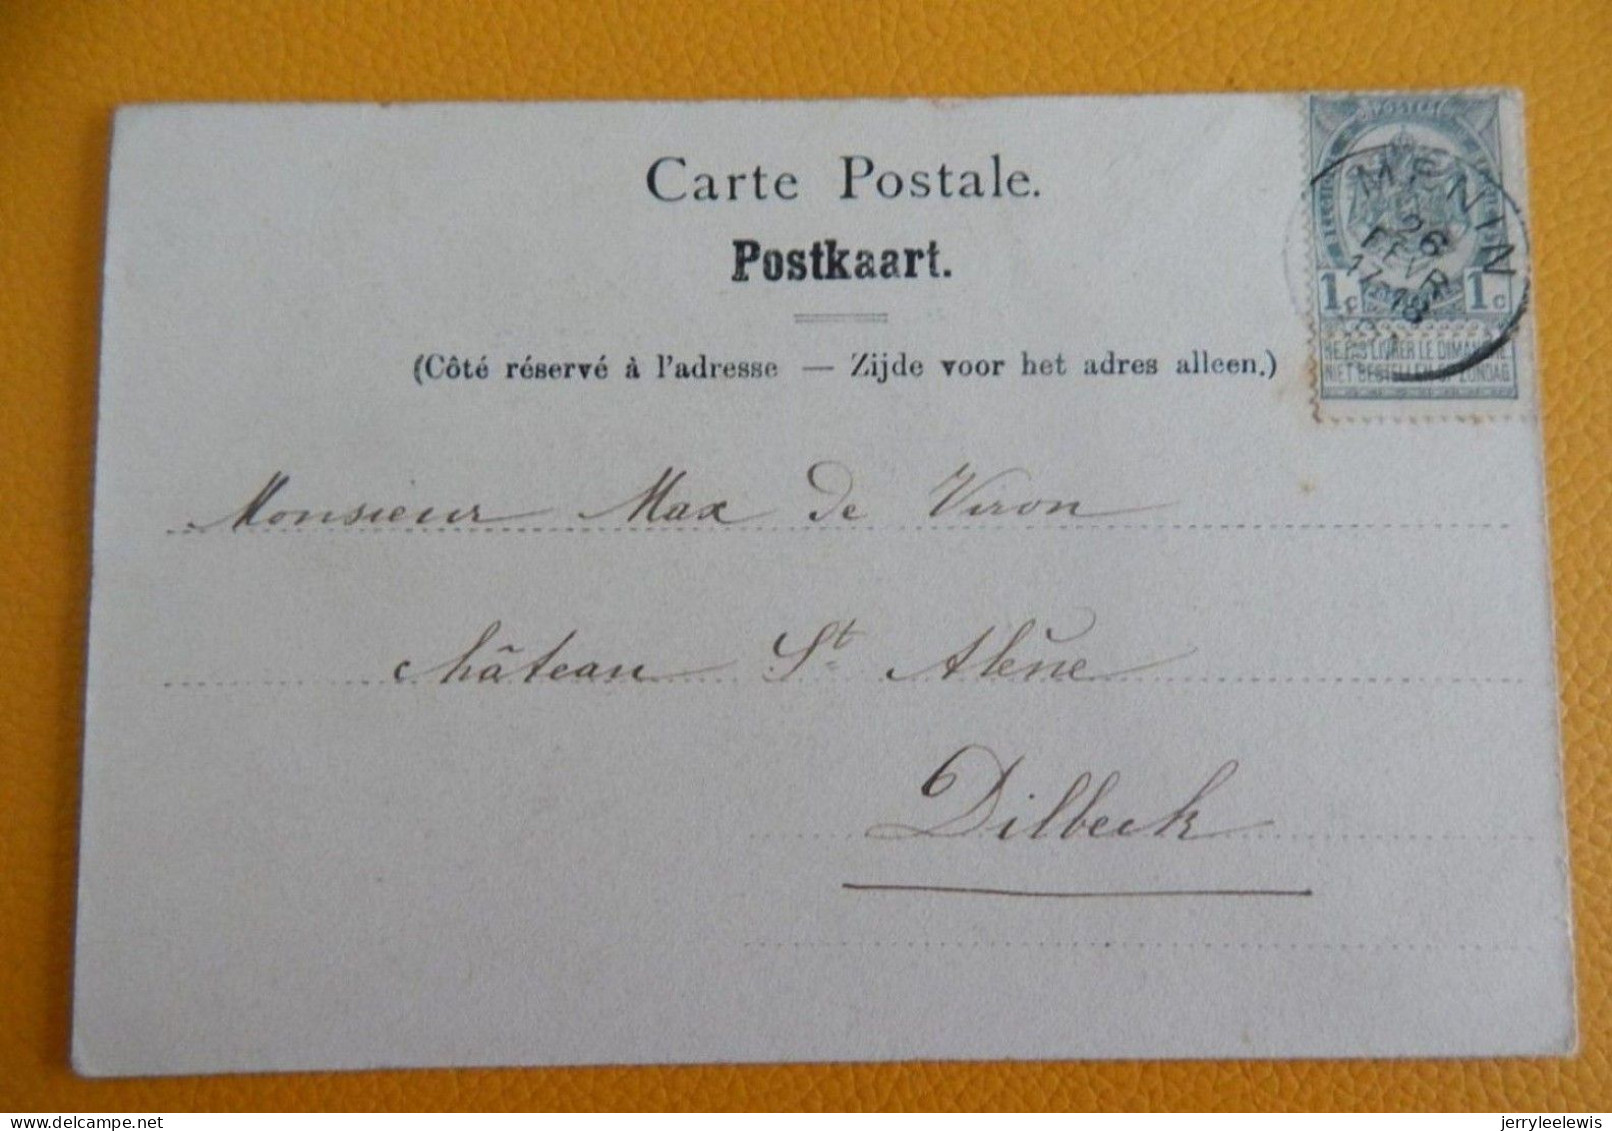 Carte Postale.
Postkaart.
(Côté réservé à l'adresse — Zijde voor het adres alleen.)
POSTES
MENIN
26
FEVR
1c 1c
NE PAS LIVRER LE DIMANCHE
NIET BESTELLEN OP ZONDAG
Monsieur Max de Viron
château St Alène
Dilbeek
jerryleelewis